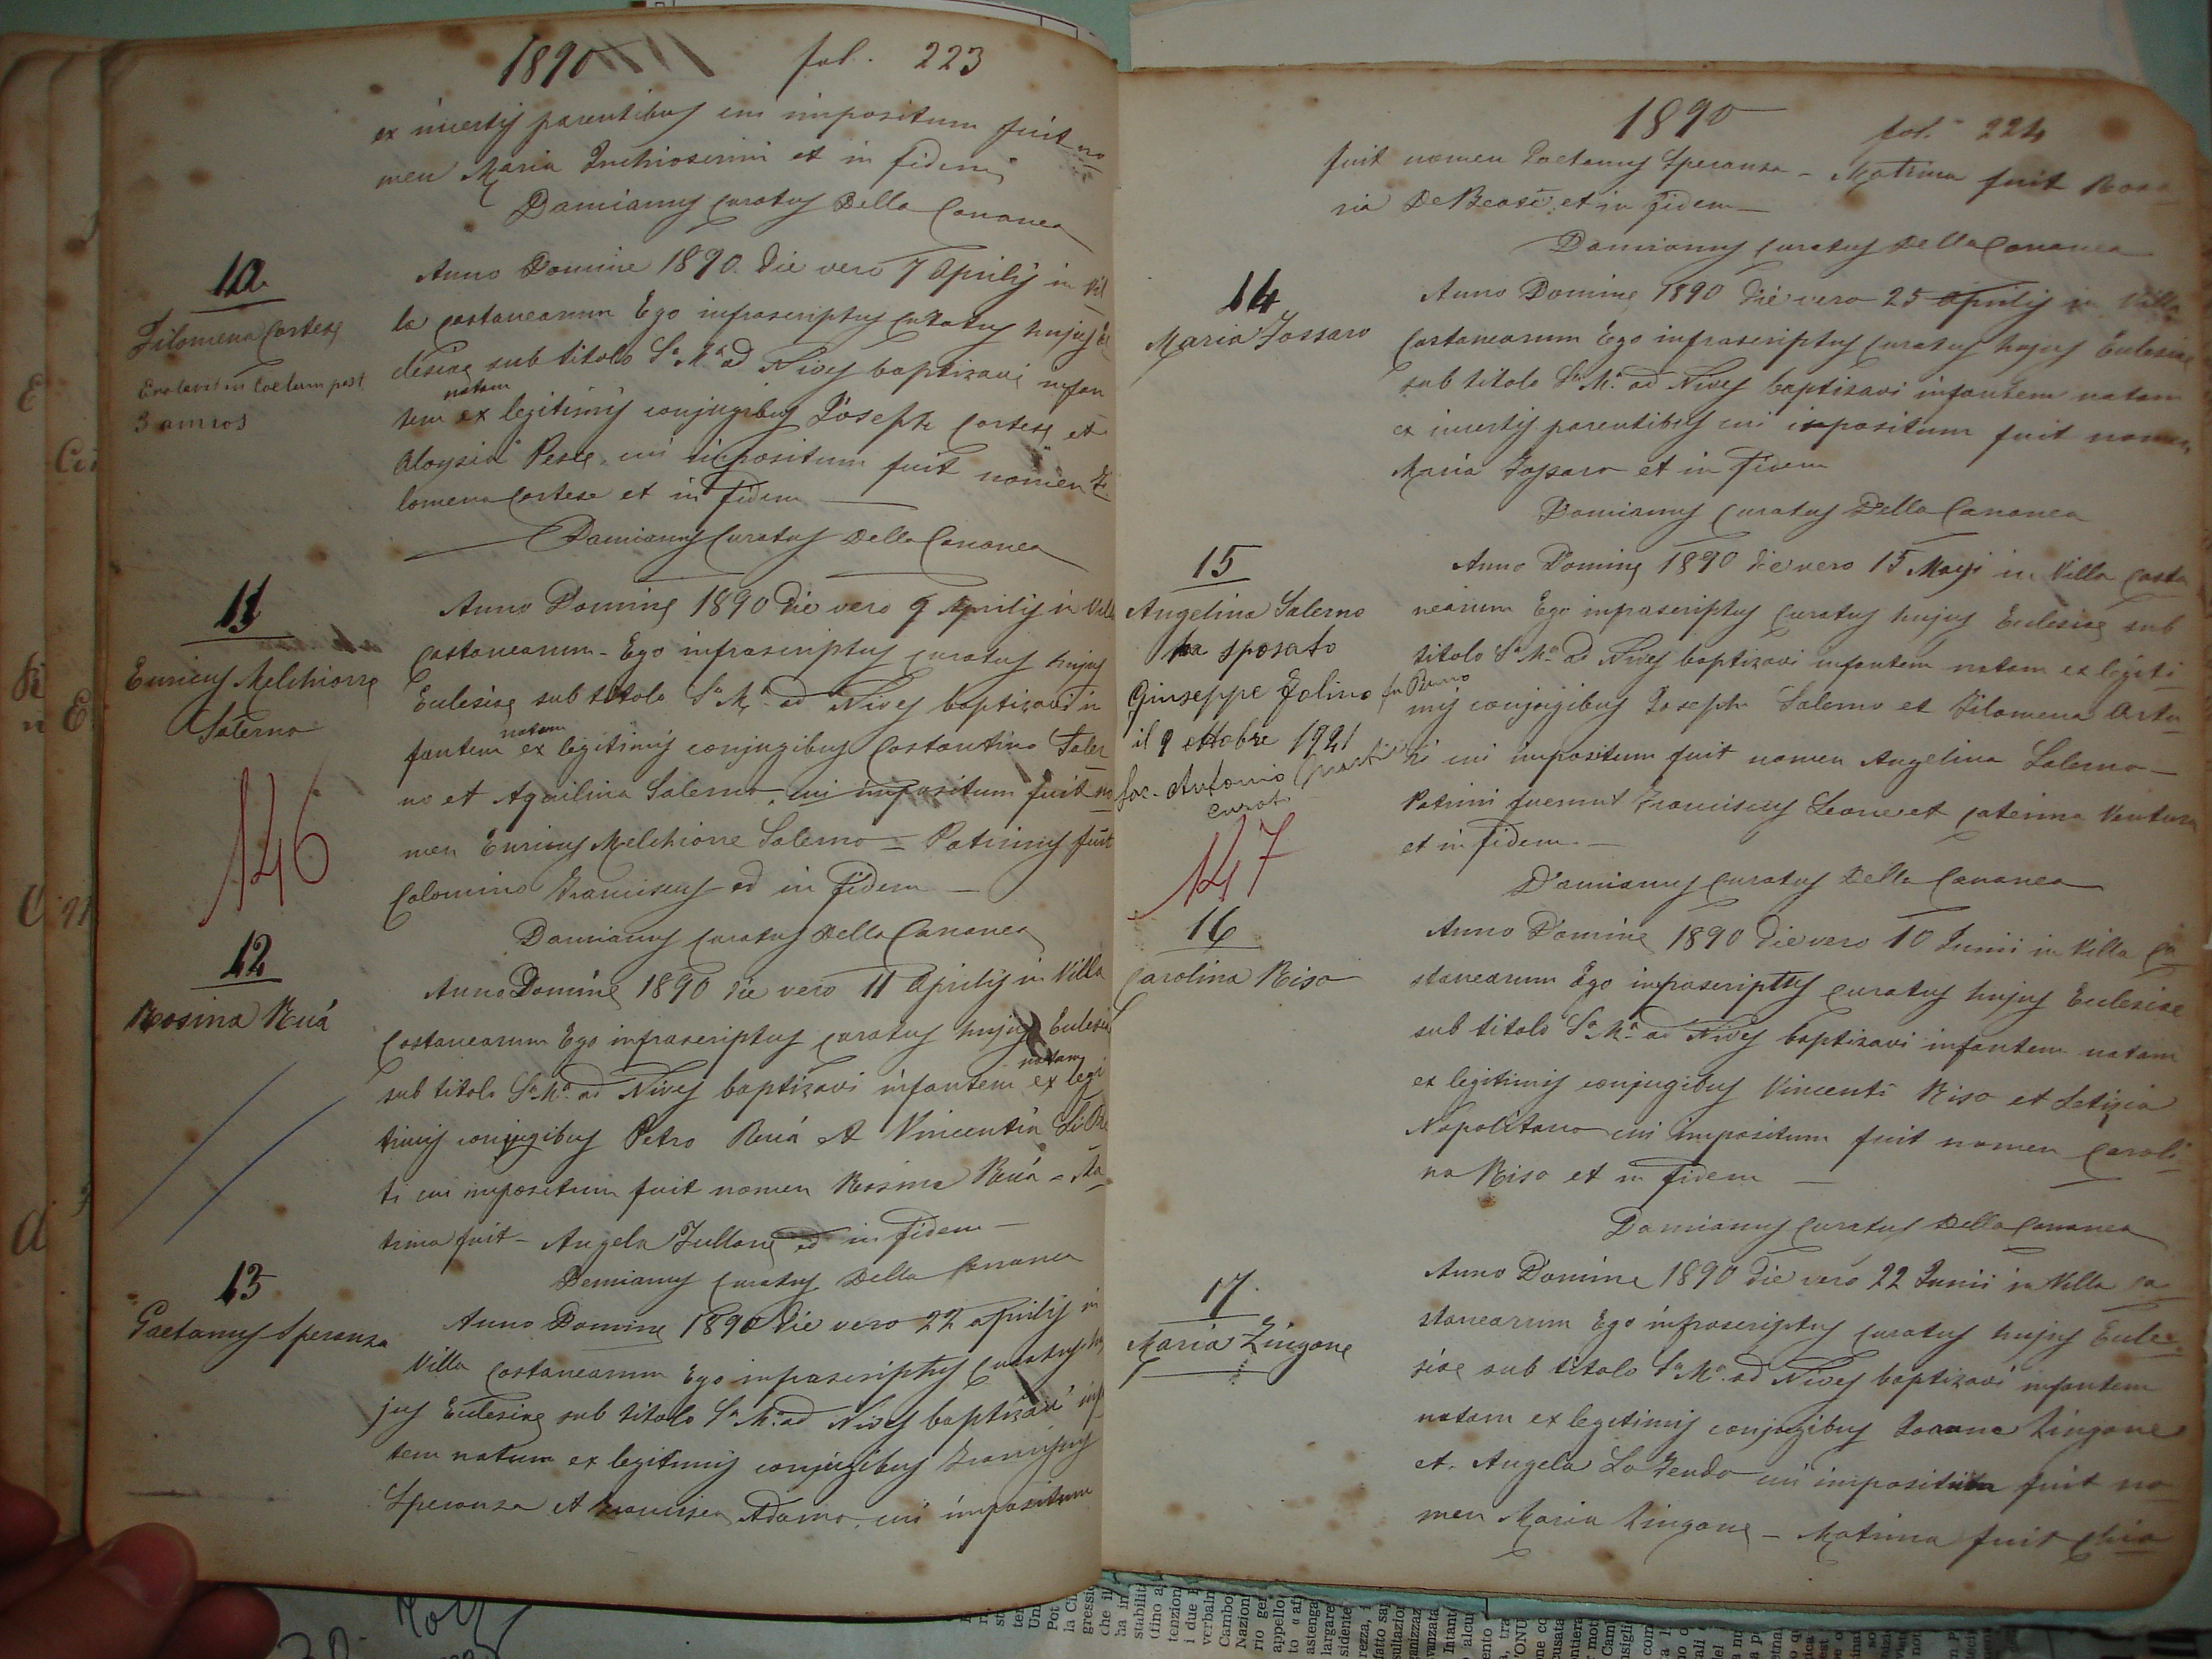 1890 fol. 223
ex incertis parentibus cui impositum fuit no
men Maria et in fidem
Damianus Curatus Della Cananea
10
Filomena Cortese
in Coelum post
3 annos
Anno Domine 1890. die vero 7 Aprilis in Vil
la Castanearum Ego infrascriptus Curatus hujus Ec
clesiae sub titolo Sa. Ma. ad Nives baptizavi infan
natam
tem ex legitimis conjugibus Joseph Cortese et
Aloysia Pesce, cui impositum fuit nomen Fi
lomena Cortese et in fidem
Damianus Curatus Della Cananea
11
Enricus Melchiorre
Salerno
146
Anno Domine 1890 die vero 9 Aprilis in Villa
Castanearum - Ego infrascriptus curatus hujus
Eclesiae sub titolo Sa Ma. ad Nives baptizavi in
natam
fantem ex legitimis conjugibus Costantino Saler
no et Aquilina Salerno, cui impositum fuit no
men Enricus Melchiorre Salerno = Patrinus fuit
Colomino Franciscus ed in fidem
Damianus Curatus Della Cananea
12
Rosina Ruá
Anno Domine 1890 die vero 11 Aprilis in Villa
Castanearum Ego infrascriptus curatus hujus Eclesiae
natam
sub titolo Sa. Ma. ad Nives baptizavi infantem ex legi
timis conjugibus Petro Ruá et Vincentia Li Pre
ti cui impositum fuit nomen Rosina Ruá = Ma
trina fuit - Angela Fullone ed in fidem
Damianus Curatus Della Cananea
13
Gaetanus Speranza
Anno Domine 1890 die vero 22 aprilis in
Villa Castanearum Ego infrascriptus Curatus hu
jus Eclesiae sub titolo Sa Ma. ad Nives baptizavi infan
tem natum ex legitimis conjugibus Franciscus
Speranza et Francisca Adamo, cui impositum
1890 fol. 224
fuit nomen Gaetanus Speranza - Matrina fuit Rosa
ria De Beasi et in fidem
Damianus Curatus Della Cananea
14
Maria Fossaro
Anno Domine 1890 die vero 25 aprilis in Villa
Castanearum Ego infrascriptus Curatus hujus Eclesiae
sub titolo Sa. Ma. ad Nives baptizavi infantem natam
ex incertis parentibus cui impositum fuit nomen
Maria Fossaro et in fidem
Damianus Curatus Della Cananea
15
Angelina Salerno
ha sposato
Giuseppe Folino fu Bruno
il 9 ottobre 1921
Sac. Antonio
Curato
147
Anno Domine 1890 die vero 15 Maji in Villa Casta
nearum Ego infrascriptus Curatus hujus Eclesiae sub
titolo Sa Ma. ad Nives baptizavi infantem natam ex legiti
mis conjugibus Joseph Salerno et Filomena Artu
ri cui impositum fuit nomen Angelina Salerno
Patrini fuerunt Franciscus Leone et Caterina Ventura
et in fidem.
Damianus Curatus Della Cananea
16
Carolina Riso
Anno Domine 1890 die vero 10 Junii in Villa Ca
stanearum Ego infrascriptus Curatus hujus Eclesiae
sub titolo Sa Ma. ad Nives baptizavi infantem natam
ex legitimis conjugibus Vincenti Riso et Letizia
Napolitano cui impositum fuit nomen Caroli
na Riso et in fidem
Damianus Curatus Della Cananea
17.
Maria Zingone
Anno Domine 1890 die vero 22 Junii in Villa Ca
stanearum Ego infrascriptus Curatus hujus Ecle
siae sub titolo Sa Ma. ad Nives baptizavi infantem
natam ex legitimis conjugibus Joanne Zingone
et Angela Lo Tendo cui impositum fuit no
men Maria Zingone - Matrina fuit Chia